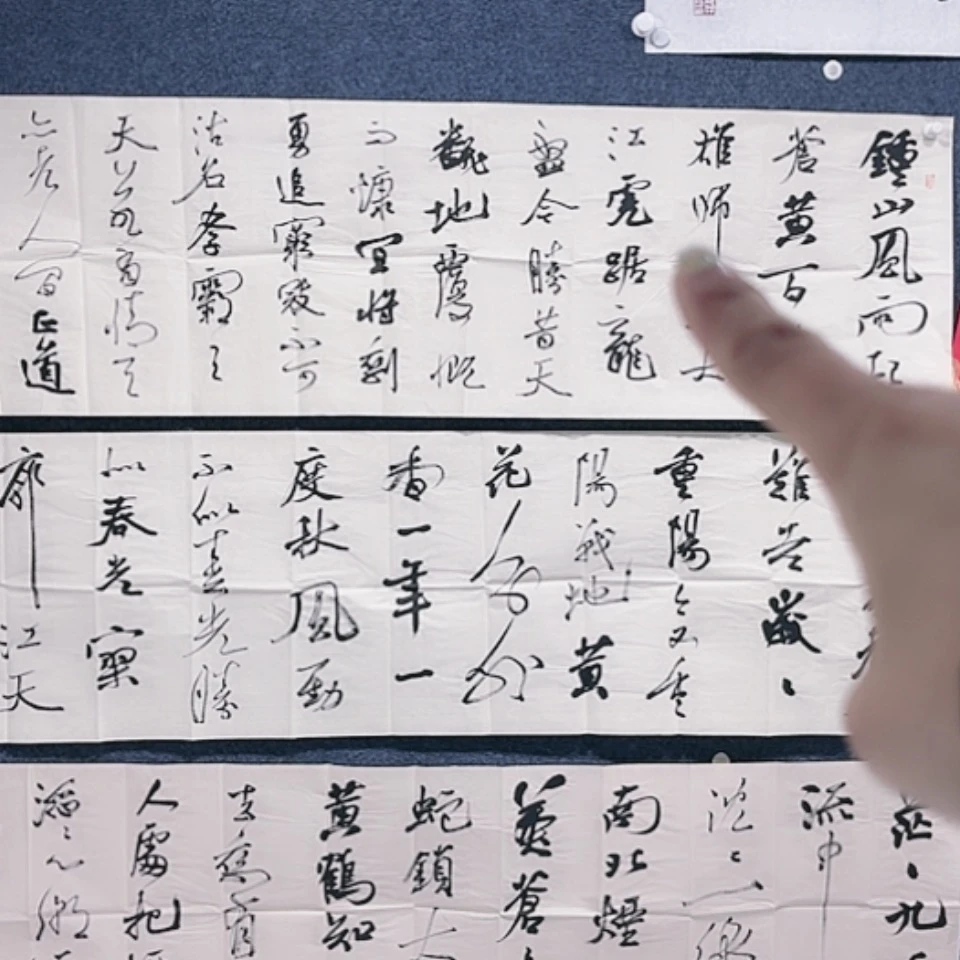 鍾山風雨起
蒼黃百
雄師大
江虎踞龍
盤今勝昔天
翻地覆慨
而慷宜將剩
勇追窮寇不可
沽名學霸王
天若有情天
亦老人間正道
難老歲々
重陽今又重
陽戰地黃
花分外
香一年一
度秋風勁
不似春光勝
似春光寥
廓江天
茫々九
流中
沉々一線
南北煙
莽蒼
蛇鎖大
黃鶴知
人處把
滔々心潮